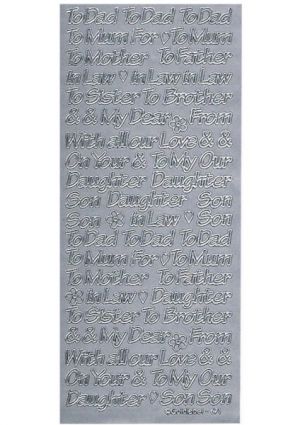 To Dad To Dad To Dad
To Mum For ♡ To Mum
To Mother To Father
in Law ♡ in Law in Law
To Sister To Brother
& & My Dear From
With all our Love & &
On Your & To My Our
Daughter Daughter
Son Daughter Son
Son in Law ♡ Son
To Dad To Dad To Dad
To Mum For ♡ To Mum
To Mother To Father
in Law ♡ Daughter
To Sister To Brother
& & My Dear From
With all our Love & &
On Your & To My Our
Daughter Son Dad